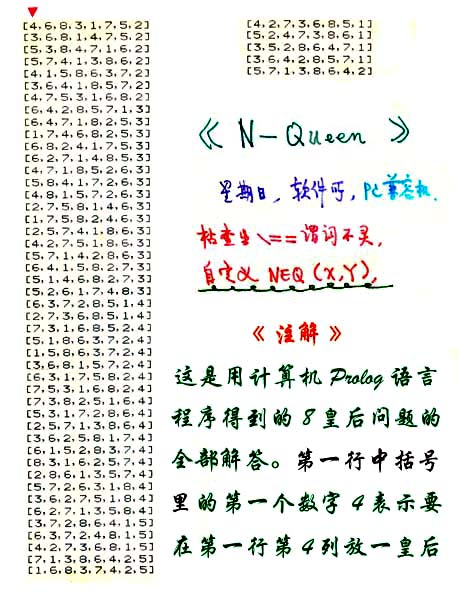 [4,6,8,3,1,7,5,2]
[3,6,8,1,4,7,5,2]
[5,3,8,4,7,1,6,2]
[5,7,4,1,3,8,6,2]
[4,1,5,8,6,3,7,2]
[3,6,4,1,8,5,7,2]
[4,7,5,3,1,6,8,2]
[6,4,2,8,5,7,1,3]
[6,4,7,1,8,2,5,3]
[1,7,4,6,8,2,5,3]
[6,8,2,4,1,7,5,3]
[6,2,7,1,4,8,5,3]
[4,7,1,8,5,2,6,3]
[5,8,4,1,7,2,6,3]
[4,8,1,5,7,2,6,3]
[2,7,5,8,1,4,6,3]
[1,7,5,8,2,4,6,3]
[2,5,7,4,1,8,6,3]
[4,2,7,5,1,8,6,3]
[5,7,1,4,2,8,6,3]
[6,4,1,5,8,2,7,3]
[5,1,4,6,8,2,7,3]
[5,2,6,1,7,4,8,3]
[6,3,7,2,8,5,1,4]
[2,7,3,6,8,5,1,4]
[7,3,1,6,8,5,2,4]
[5,1,8,6,3,7,2,4]
[1,5,8,6,3,7,2,4]
[3,6,8,1,5,7,2,4]
[6,3,1,7,5,8,2,4]
[7,5,3,1,6,8,2,4]
[7,3,8,2,5,1,6,4]
[5,3,1,7,2,8,6,4]
[2,5,7,1,3,8,6,4]
[3,6,2,5,8,1,7,4]
[6,1,5,2,8,3,7,4]
[8,3,1,6,2,5,7,4]
[2,8,6,1,3,5,7,4]
[5,7,2,6,3,1,8,4]
[3,6,2,7,5,1,8,4]
[6,2,7,1,3,5,8,4]
[3,7,2,8,6,4,1,5]
[6,3,7,2,4,8,1,5]
[4,2,7,3,6,8,1,5]
[7,1,3,8,6,4,2,5]
[1,6,8,3,7,4,2,5]
[4,2,7,3,6,8,5,1]
[5,2,4,7,3,8,6,1]
[3,5,2,8,6,4,7,1]
[3,6,4,2,8,5,7,1]
[5,7,1,3,8,6,4,2]
《 N-Queen 》
星期日，软件所，PC兼容机.
检查出 \== 谓词不灵，
自定义 NEQ (X,Y),
《 注解 》
这是用计算机 Prolog 语言
程序得到的 8 皇后问题的
全部解答。第一行中括号
里的第一个数字 4 表示要
在第一行第 4 列放一皇后